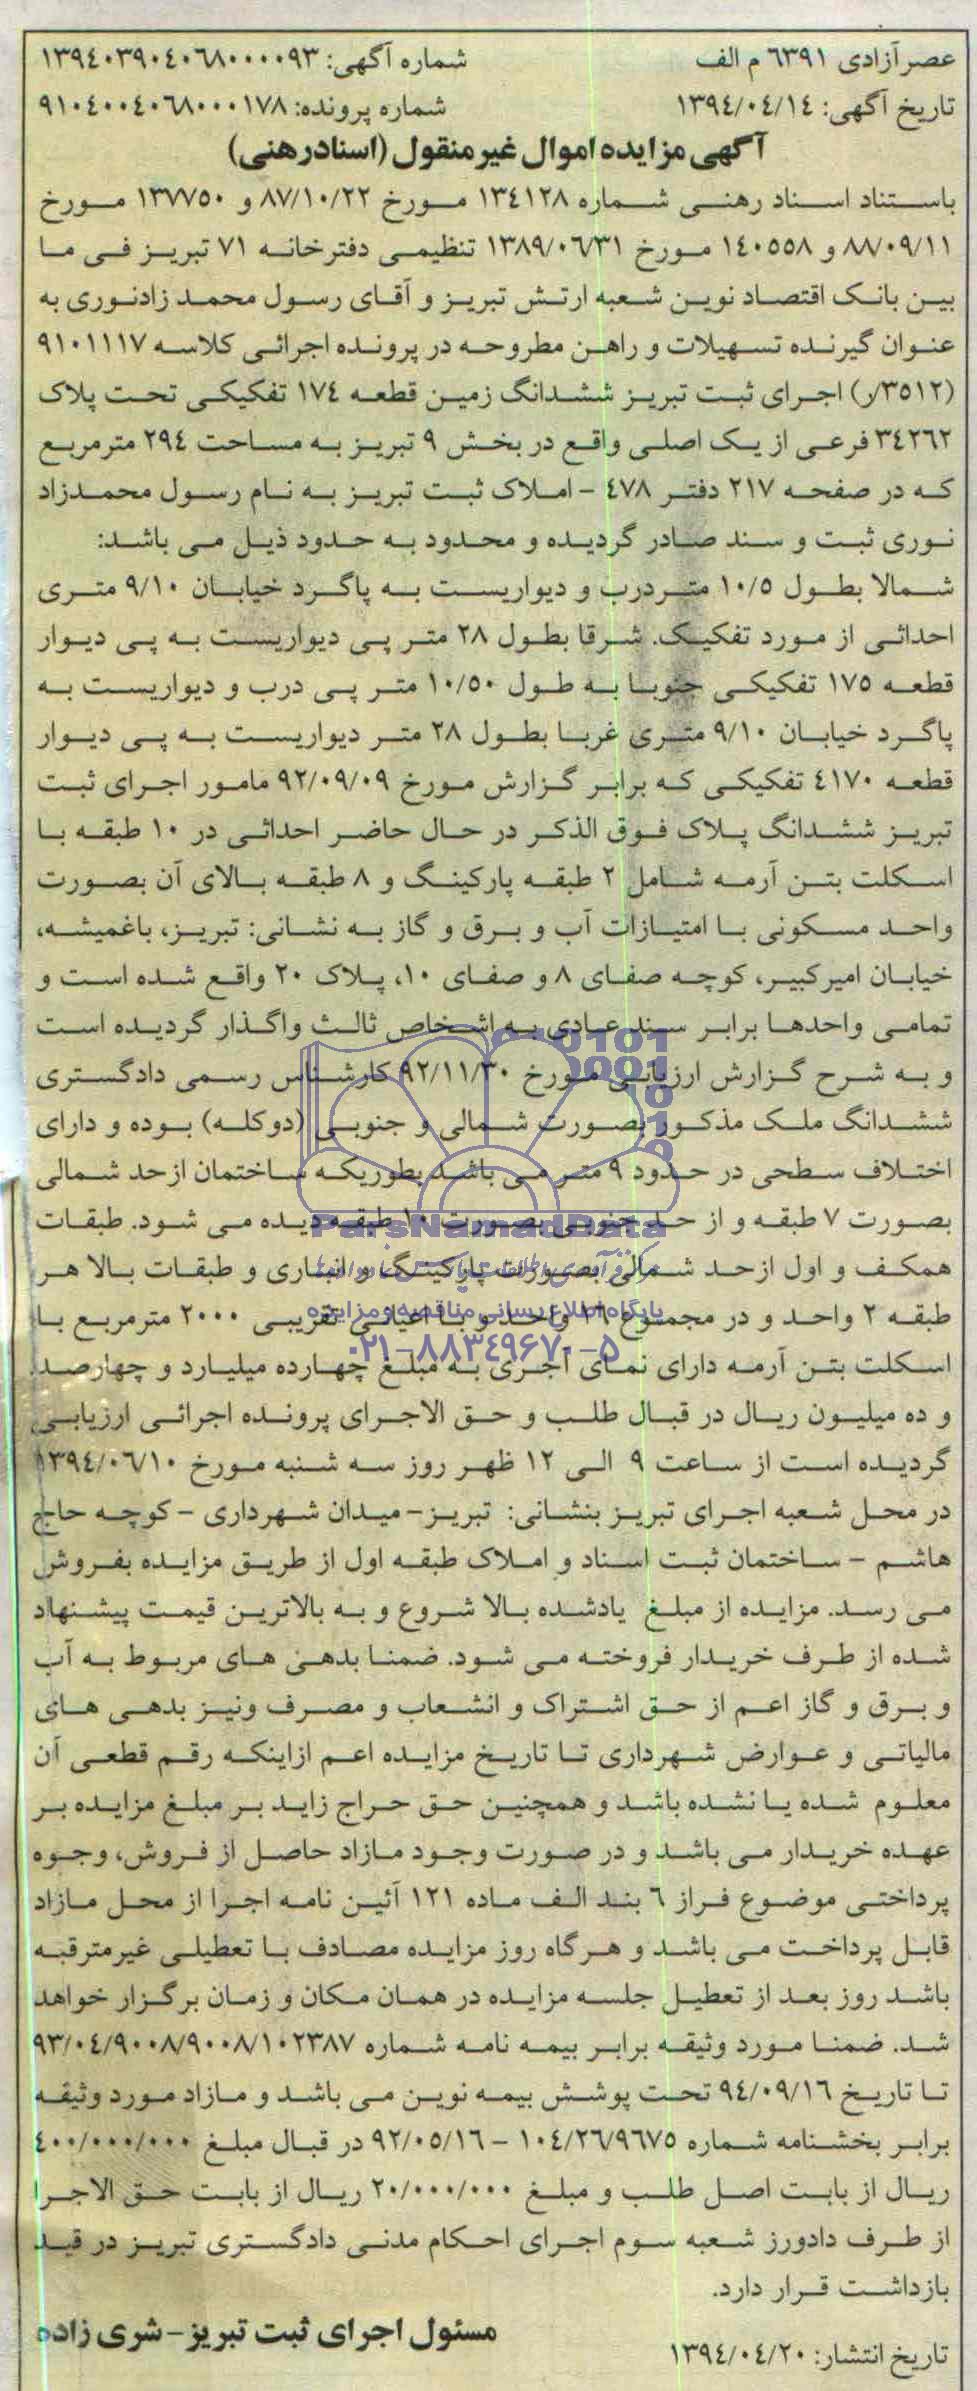 عصر آزادی ٦٣٩١ م الف
شماره آگهی: ١٣٩٤٠٣٩٠٤٠٦٨٠٠٠٠٩٣
تاریخ آگهی: ١٣٩٤/٠٤/١٤
شماره پرونده: ٩١٠٤٠٠٤٠٦٨٠٠٠١٧٨
آگهی مزایده اموال غیر منقول (اسناد رهنی)
باستناد اسناد رهنی شماره ١٣٤١٢٨ مورخ ٨٧/١٠/٢٢ و ١٣٧٧٥٠ مورخ
٨٨/٠٩/١١ و ١٤٠٥٥٨ مورخ ١٣٨٩/٠٦/٣١ تنظیمی دفترخانه ٧١ تبریز فی ما
بین بانک اقتصاد نوین شعبه ارتش تبریز و آقای رسول محمد زادنوری به
عنوان گیرنده تسهیلات و راهن مطروحه در پرونده اجرائی کلاسه ٩١٠١١١٧
(٣٥١٢/ر) اجرای ثبت تبریز ششدانگ زمین قطعه ١٧٤ تفکیکی تحت پلاک
٣٤٢٦٢ فرعی از یک اصلی واقع در بخش ٩ تبریز به مساحت ٢٩٤ مترمربع
که در صفحه ٢١٧ دفتر ٤٧٨ - املاک ثبت تبریز به نام رسول محمدزاد
نوری ثبت و سند صادر گردیده و محدود به حدود ذیل می باشد:
شمالا بطول ١٠/٥ متردرب و دیواریست به پاگرد خیابان ٩/١٠ متری
احداثی از مورد تفکیک. شرقا بطول ٢٨ متر پی دیواریست به پی دیوار
قطعه ١٧٥ تفکیکی جنوبا به طول ١٠/٥٠ متر پی درب و دیواریست به
پاگرد خیابان ٩/١٠ متری غربا بطول ٢٨ متر دیواریست به پی دیوار
قطعه ٤١٧٠ تفکیکی که برابر گزارش مورخ ٩٢/٠٩/٠٩ مامور اجرای ثبت
تبریز ششدانگ پلاک فوق الذکر در حال حاضر احداثی در ١٠ طبقه با
اسکلت بتن آرمه شامل ٢ طبقه پارکینگ و ٨ طبقه بالای آن بصورت
واحد مسکونی با امتیازات آب و برق و گاز به نشانی: تبریز، باغمیشه،
خیابان امیرکبیر، کوچه صفای ٨ و صفای ١٠، پلاک ٢٠ واقع شده است و
تمامی واحدها برابر سند عادی به اشخاص ثالث واگذار گردیده است
و به شرح گزارش ارزیائی مورخ ٩٢/١١/٣٠ کارشناس رسمی دادگستری
ششدانگ ملک مذکور بصورت شمالی و جنوبی (دوکله) بوده و دارای
اختلاف سطحی در حدود ٩ متر می باشد بطوریکه ساختمان از حد شمالی
بصورت ٧ طبقه و از حد جنوبی بصورت ١٠ طبقه دیده می شود. طبقات
ParsNamadData
همکف و اول از حد شمالی بصورت پارکینگ و انباری و طبقات بالا هر
طبقه ٢ واحد و در مجموع ١٦ واحد و با اعیانی تقریبی ٢٠٠٠ مترمربع با
پایگاه اطلاع رسانی مناقصه و مزایده
۰۲۱-۸۸۳۴۹۶۷۰-۵
اسکلت بتن آرمه دارای نمای آجری به مبلغ چهارده میلیارد و چهارصد
و ده میلیون ریال در قبال طلب و حق الاجرای پرونده اجرائی ارزیابی
گردیده است از ساعت ٩ الی ١٢ ظهر روز سه شنبه مورخ ١٣٩٤/٠٦/١٠
در محل شعبه اجرای تبریز بنشانی: تبریز- میدان شهرداری - کوچه حاج
هاشم - ساختمان ثبت اسناد و املاک طبقه اول از طریق مزایده بفروش
می رسد. مزایده از مبلغ یادشده بالا شروع و به بالاترین قیمت پیشنهاد
شده از طرف خریدار فروخته می شود. ضمنا بدهی های مربوط به آب
و برق و گاز اعم از حق اشتراک و انشعاب و مصرف ونیز بدهی های
مالیاتی و عوارض شهرداری تا تاریخ مزایده اعم ازاینکه رقم قطعی آن
معلوم شده یا نشده باشد و همچنین حق حراج زاید بر مبلغ مزایده بر
عهده خریدار می باشد و در صورت وجود مازاد حاصل از فروش، وجوه
پرداختی موضوع فراز ٦ بند الف ماده ١٢١ آئین نامه اجرا از محل مازاد
قابل پرداخت می باشد و هرگاه روز مزایده مصادف با تعطیلی غیرمترقبه
باشد روز بعد از تعطیل جلسه مزایده در همان مکان و زمان برگزار خواهد
شد. ضمنا مورد وثیقه برابر بیمه نامه شماره ٩٣/٠٤/٩٠٠٨/٩٠٠٨/١٠٢٣٨٧
تا تاریخ ٩٤/٠٩/١٦ تحت پوشش بیمه نوین می باشد و مازاد مورد وثیقه
برابر بخشنامه شماره ١٠٤/٢٦/٩٦٧٥ - ٩٢/٠٥/١٦ در قبال مبلغ ٤٠٠/٠٠٠/٠٠٠
ریال از بابت اصل طلب و مبلغ ٢٠/٠٠٠/٠٠٠ ریال از بابت حق الاجرا
از طرف دادورز شعبه سوم اجرای احکام مدنی دادگستری تبریز در قید
بازداشت قرار دارد.
مسئول اجرای ثبت تبریز- شری زاده
تاریخ انتشار: ١٣٩٤/٠٤/٢٠